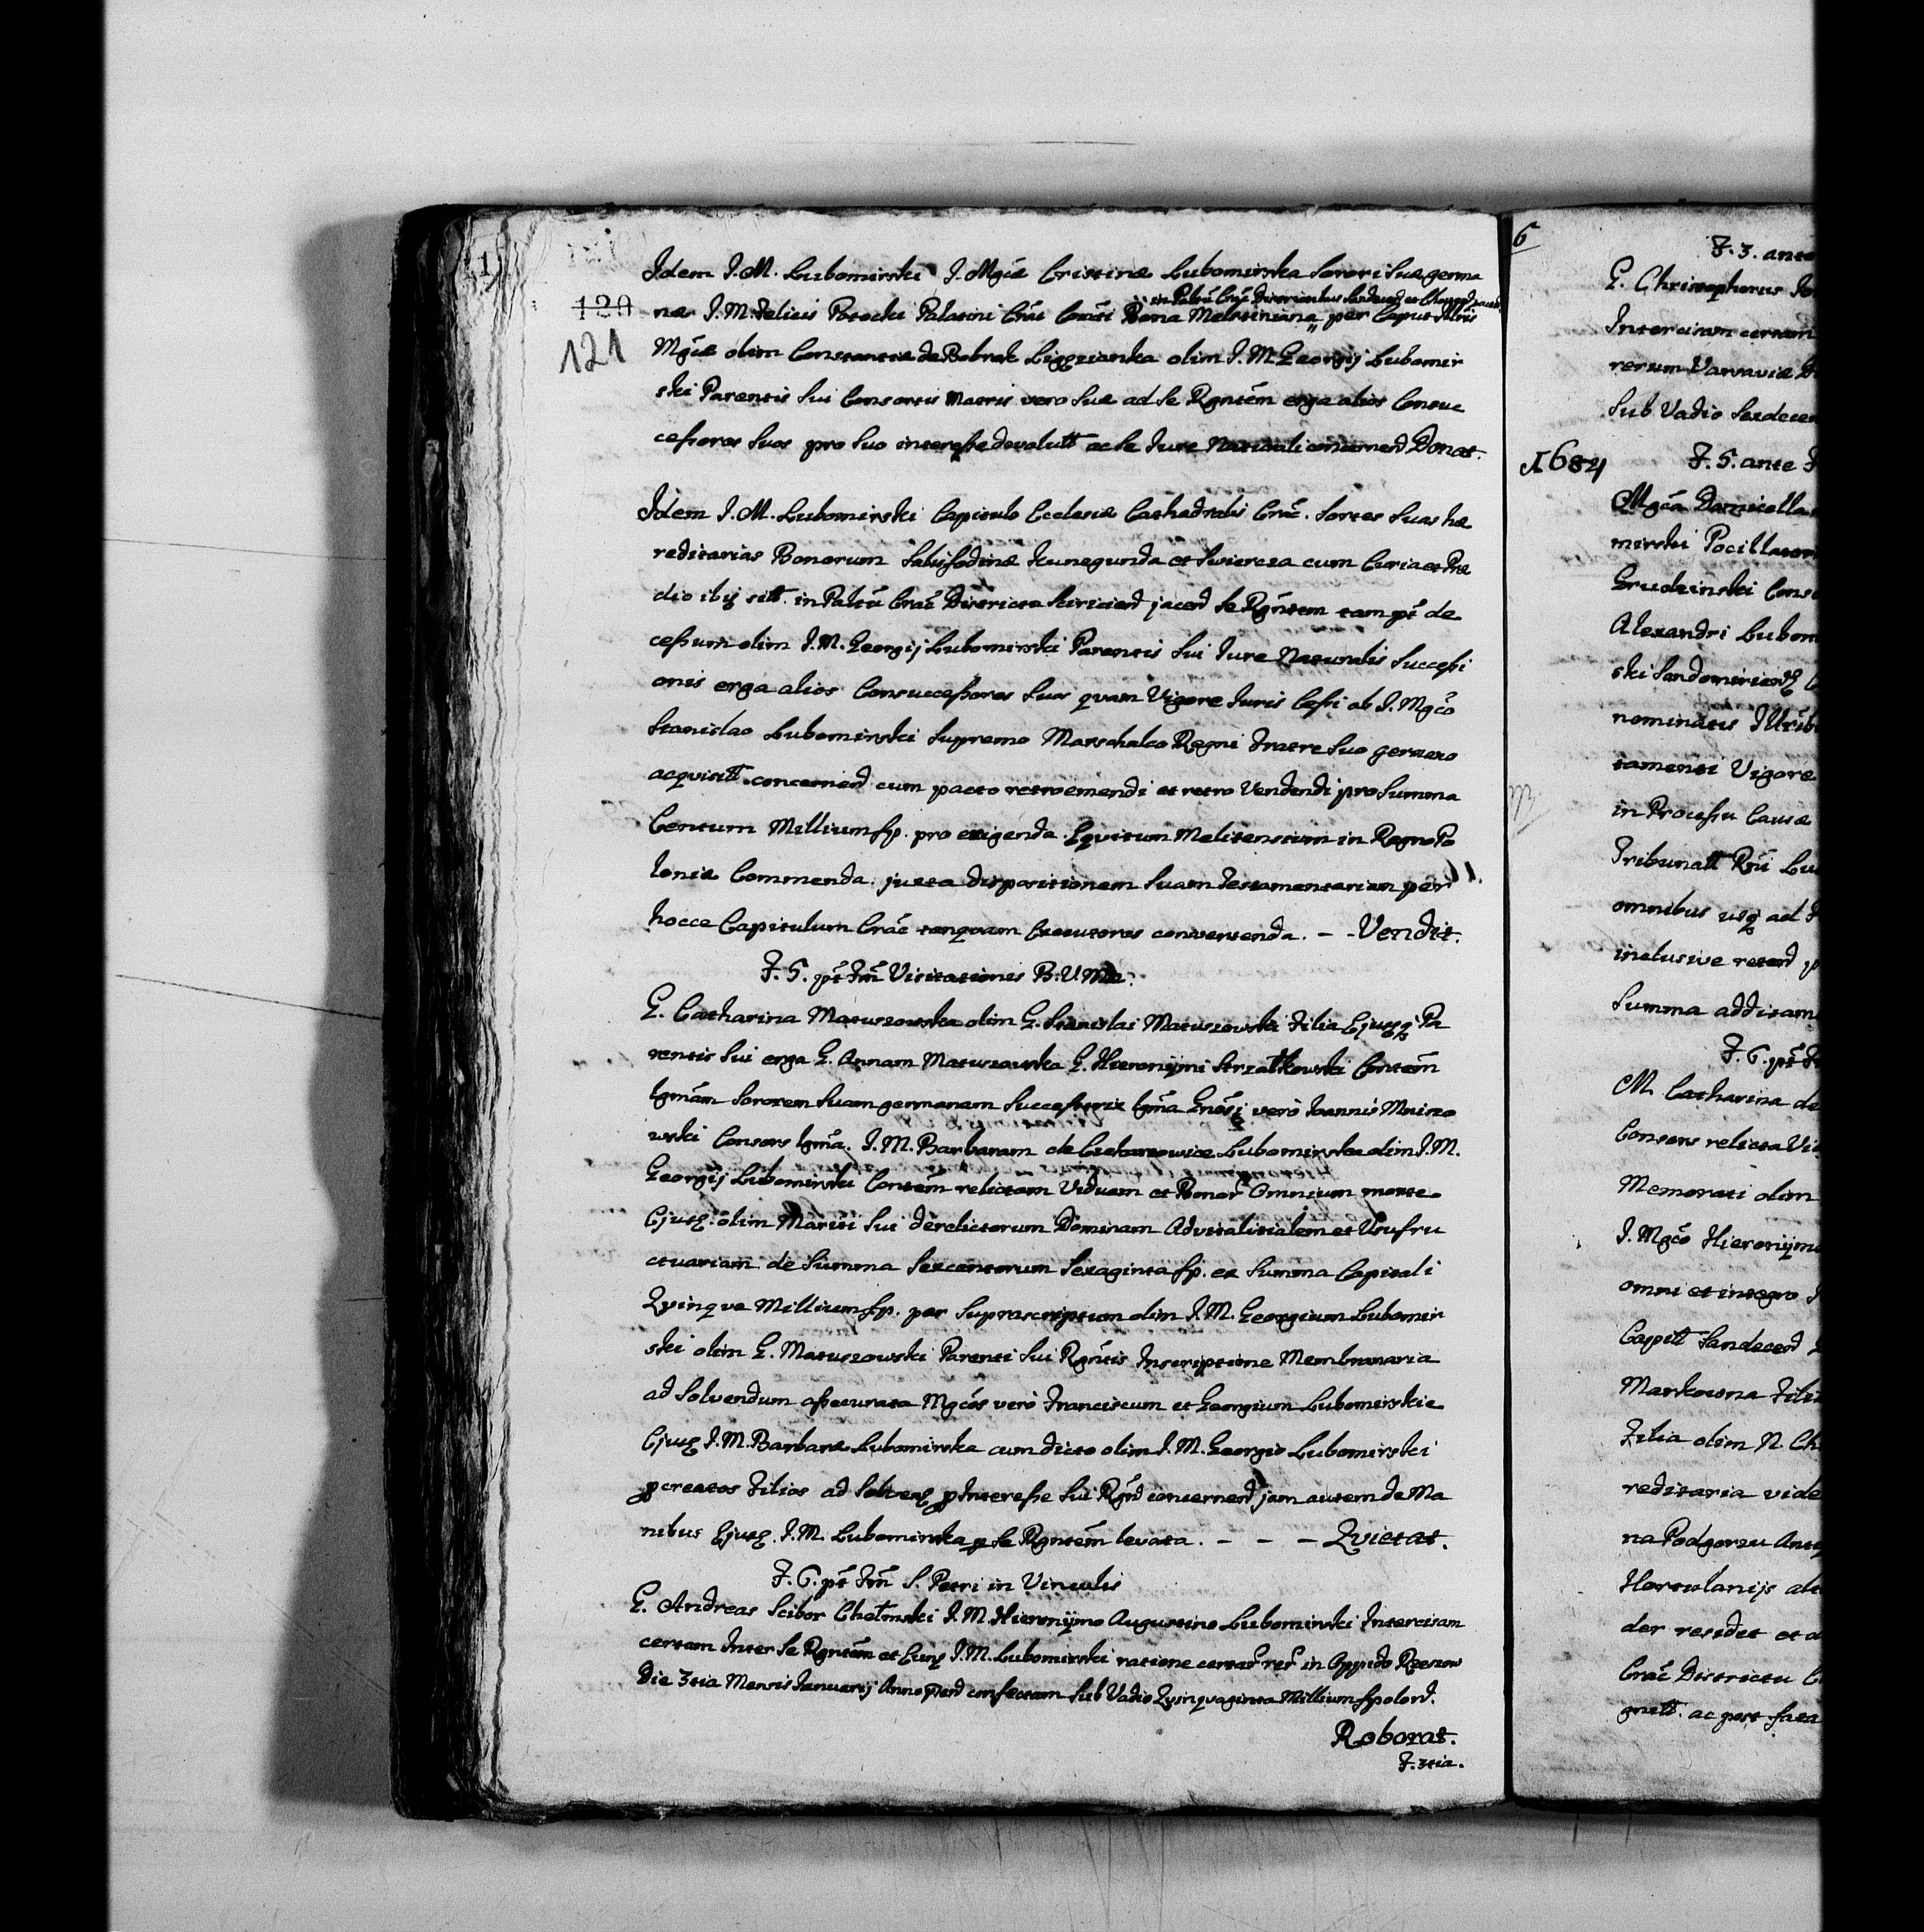 120
121
Idem I.M. Lubomirski I. Mgcæ Cristinæ Lubomirska Sorori Suæ germa
in Palatū Crac̄ Districtibus
næ I.M. Felicis Potocki Palatini Crac̄ Consti Bona Melstiniana per Caput Illris
Mgcæ olim Constantiæ de Bobrek Ligęzianka olim I.M. Georgij Lubomir
ski Parentis Sui Consortis Matris vero Suæ ad Se Rgntēm erga alios Consuc
ceßores Suos pro Suo intereße devolutt ac Se Jure Naturali concernen Donat.
Idem I.M. Lubomirski Capitulo Ecclesiæ Cathedralis Crac̄. Sortes Suas hæ
reditarias Bonorum Salisfodinæ Kunegunda et Swiercza cum Curia et Præ
dio ibi sitt. in Palatū Crac̄ Districtu Sciricien jacen Se Rgntem tam pt̄ de
ceßum olim I.M. Georgij Lubomirski Parentis Sui Jure Naturalis Succeßi
onis erga alios Consucceßores Suos quam Vigore Juris Ceßi ab I. Mgco
Stanislao Lubomirski Supremo Marschalco Regni Fratre Suo germano
acquisitt. concernen cum pacto retroemendi et retro Vendendi pro Summa
Centum Millium fp. pro erigenda Equitum Melitensium in Regno Po
loniæ Commenda. juxta dispositionem Suam Testamentariam per
hocce Capitulum Crac̄ tanquam Executores convertenda. - - Vendit.
F. 5. pt̄ Fm̄ Visitationis B.V. Mæ.
G. Catharina Matuszowska olim G. Stanislai Matuszowski Filia Ejusq Pa
rentis Sui erga G. Annam Matuszowska G. Hieronijmi Strzałkowski Contēm
lgmām Sororem Suam germanam Succeßorix lgmā Gnosi verò Joannis Mniszo
wski Consors lgmā. I.M. Barbaram de Lubomirska olim I.M.
Georgij Lubomirski Contēm relictam Viduam et Bonor Omnium morte
Ejusq. olim Mariti Sui derelictorum Dominam Advitalitialem et Usufru
ctuariam de Summa Sexcentorum Sexaginta fp. ex Summa Capitali
Qvinqve Millium fp. per Suprascriptum olim I.M. Georgium Lubomir
ski olim G. Matuszowski Parenti Sui Rgntis Inscriptione Membranaria
ad Solvendum aßecurata Mgcos verò Franciscum et Georgium Lubomirskie
Ejusq I.M. Barbaræ Lubomirska cum dicto olim I.M. Georgio Lubomirski
pcreatos Filios ad p Intereße Sui Rgn concernen jam autem de Ma
nibus Ejusq. I.M. Lubomirska p Se Rgntēm levata. - - - Qvietat.
F. 6. pt̄ Fm̄ S. Petri in Vinculis
G. Andreas Scibor Chełmski I.M. Hieronijmo Augustino Lubomirski Intercisam
certam Inter Se Rgntēm et Eunq I.M. Lubomirski ratione certar rer in Oppido Rzeszow
Die 3tia Mensis Januarij Anno confectam Sub Vadio Qvinqvaginta Millium fpolon.
Roborat.
F. 3tia.
6
F. 3. ante
G. Christophorus
Intercisam certam
rerum Varsaviæ
Sub Vadio Sexdecem
1684
F. 5. ante
Mgcā Domicella
mirski Pocillator
Grudzinski Cons
Alexandri Lubom
ski Sandomirien
nominatis
tamenti Vigore
in Proceßu Causæ
Tribunatt Rni Lu
omnibus usq ad
inclusive
Summa additam
F. 6. pt̄
M. Catharina de
Consors relicta Vi
Memorati olim
I. Mgco Hieronijmo
omni et integro
Capitt Sandecen
Markowna Fili
Filia olim N. Ch
reditaria vide
na Podgorzu Ant
Hortulanijs
der residet et
Crac̄ Districtu
gnett. ac post fata